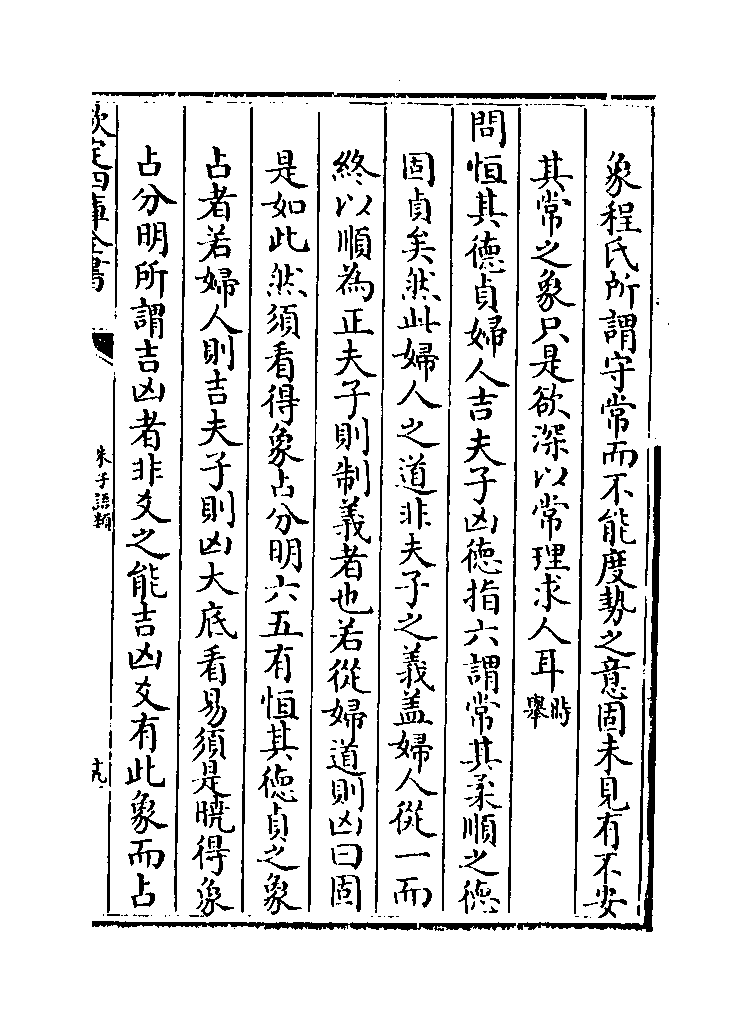 象程氏所謂守常而不能度勢之意固未見有不安
其常之象只是欲深以常理求人耳時舉
問恒其德貞婦人吉夫子凶德指六謂常其柔順之德
固貞矣然此婦人之道非夫子之義盖婦人從一而
終以順為正夫子則制義者也若從婦道則凶曰固
是如此然須看得象占分明六五有恒其德貞之象
占者若婦人則吉夫子則凶大底看易須是曉得象
占分明所謂吉凶者非爻之能吉凶爻有此象而占
欽定四庫全書
朱子語類